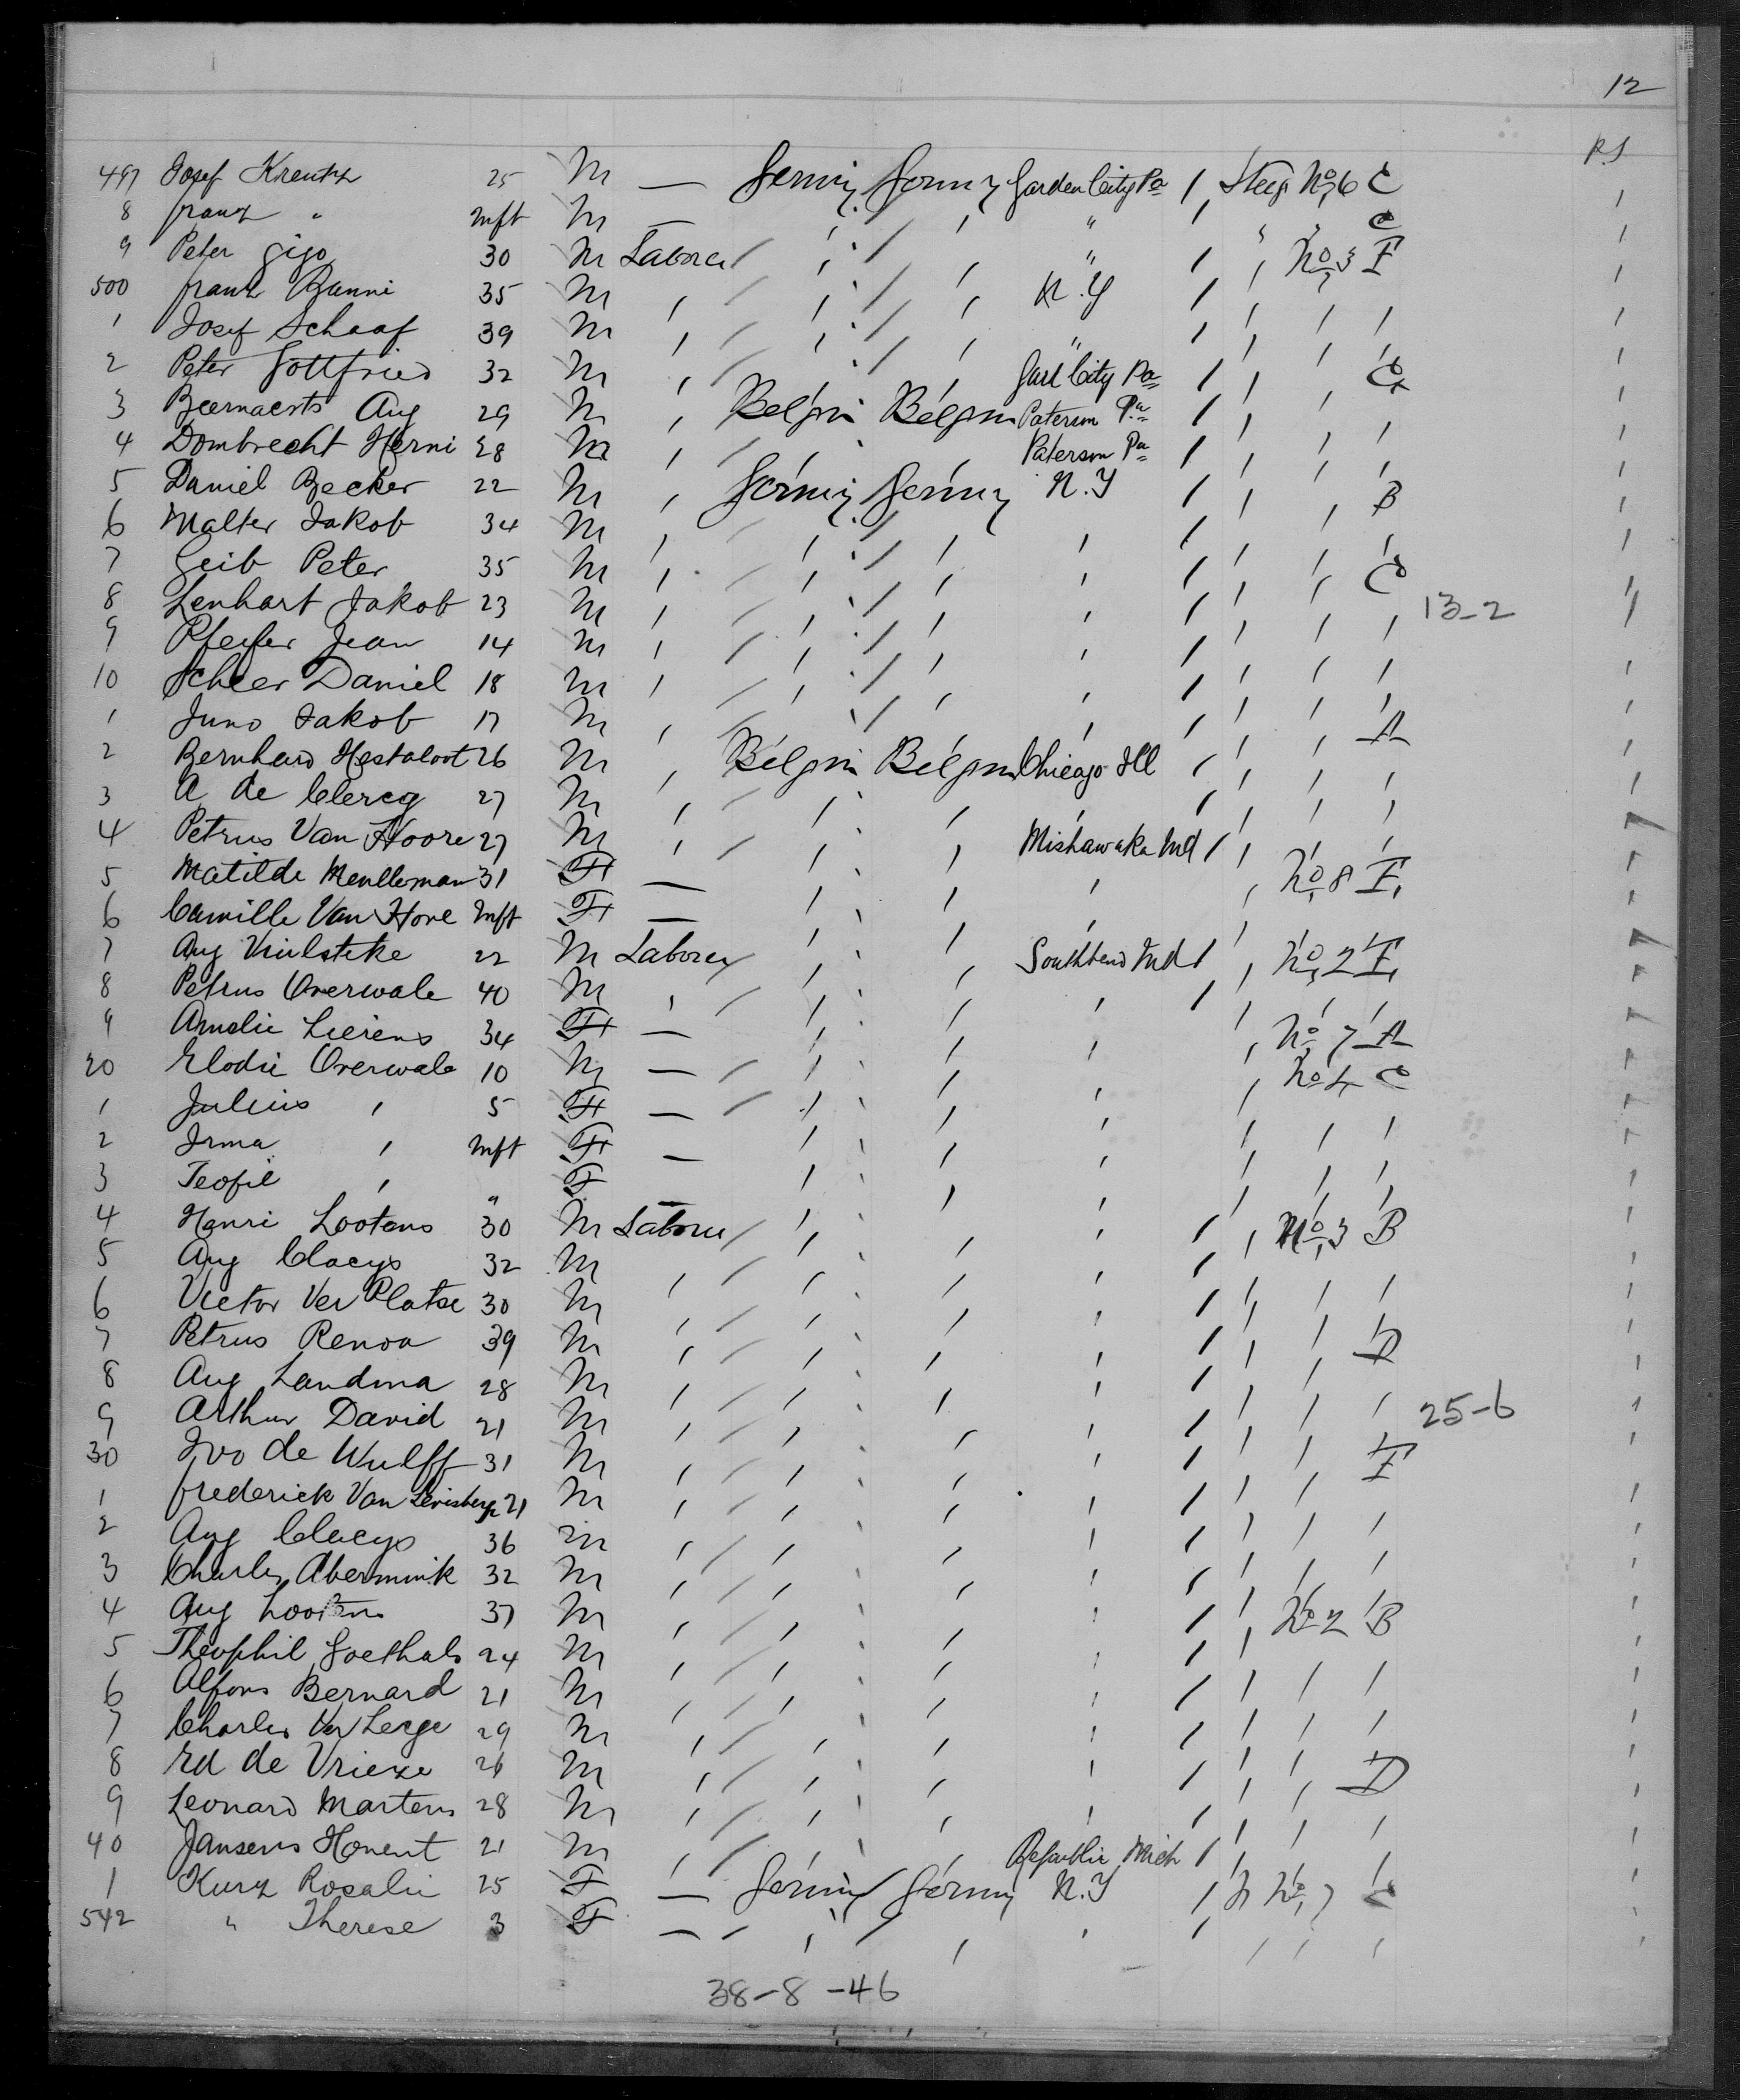 12
P.S
497 Josef Kreutz 25 M — Germy Germy Garden City Pa / Steeg No 6 C
8 Franz " Inft M — ' ' " / ' ' C
9 Peter Gigo 30 M Laborer ' ' " / ' No 3 F
500 Franz Banni 35 M ' ' ' N.Y / ' ' '
1 Josef Schaaf 39 M ' ' ' " / ' ' '
2 Peter Gottfried 32 M ' ' ' Gard City Pa / ' ' C
3 Beernaerts Aug 29 M ' Belgm Belgm Paterson Pa / ' ' '
4 Dombrecht Henri 28 M ' ' ' Paterson Pa / ' ' '
5 Daniel Becker 22 M ' Germy Germy N.Y / ' ' B
6 Malter Jakob 34 M ' ' ' ' / ' ' '
7 Geib Peter 35 M ' ' ' ' / ' ' C
8 Lenhart Jakob 23 M ' ' ' ' / ' ' ' 13-2
9 Pfeifer Jean 14 M ' ' ' ' / ' ' '
10 Scheer Daniel 18 M ' ' ' ' / ' ' '
1 Juno Jakob 17 M ' ' ' ' / ' ' A
2 Bernhard Hestaloot 26 M ' Belgm Belgm Chicago Ill / ' ' '
3 A de Clercq 27 M ' ' ' ' / ' ' '
4 Petrus Van Hoore 27 M ' ' ' Mishawaka Ind / ' ' '
5 Matilde Meulleman 31 F — ' ' ' ' No 8 F
6 Camille Van Hove Inft F — ' ' ' ' ' '
7 Aug Viulsteke 22 M Laborer ' ' Southbend Ind / ' No 2 F
8 Petrus Overwale 40 M ' ' ' ' / ' ' '
9 Amelie Lierens 34 F — ' ' ' ' No 7 A
20 Elodie Overwale 10 M — ' ' ' ' No 4 C
1 Julius ' 5 F — ' ' ' ' ' '
2 Irma ' Inft F — ' ' ' ' ' '
3 Teofil ' " F — ' ' ' ' ' '
4 Henri Lootens 30 M Laborer ' ' ' / ' No 3 B
5 Aug Claeys 32 M ' ' ' ' / ' ' '
6 Victor Ver Platse 30 M ' ' ' ' / ' ' '
7 Petrus Renoa 39 M ' ' ' ' / ' ' D
8 Aug Landma 28 M ' ' ' ' / ' ' '
9 Arthur David 21 M ' ' ' ' / ' ' ' 25-6
30 Ivo de Wulff 31 M ' ' ' ' / ' ' F
1 Frederick Van 21 M ' ' ' ' / ' ' '
2 Aug Claeys 36 M ' ' ' ' / ' ' '
3 Charles Abermink 32 M ' ' ' ' / ' ' '
4 Aug Lootens 37 M ' ' ' ' / ' No 2 B
5 Theophil Goethals 24 M ' ' ' ' / ' ' '
6 Alfons Bernard 21 M ' ' ' ' / ' ' '
7 Charles Ver Lege 29 M ' ' ' ' / ' ' '
8 Ed de Vrieze 26 M ' ' ' ' / ' ' D
9 Leonard Martens 28 M ' ' ' ' / ' ' '
40 Jansens Honent 21 M ' ' ' Republic Mich / ' ' '
1 Kurz Rosalie 25 F — Germy Germy N.Y / ' No 7 C
542 " Therese 3 F — ' ' ' / ' ' '
38-8-46